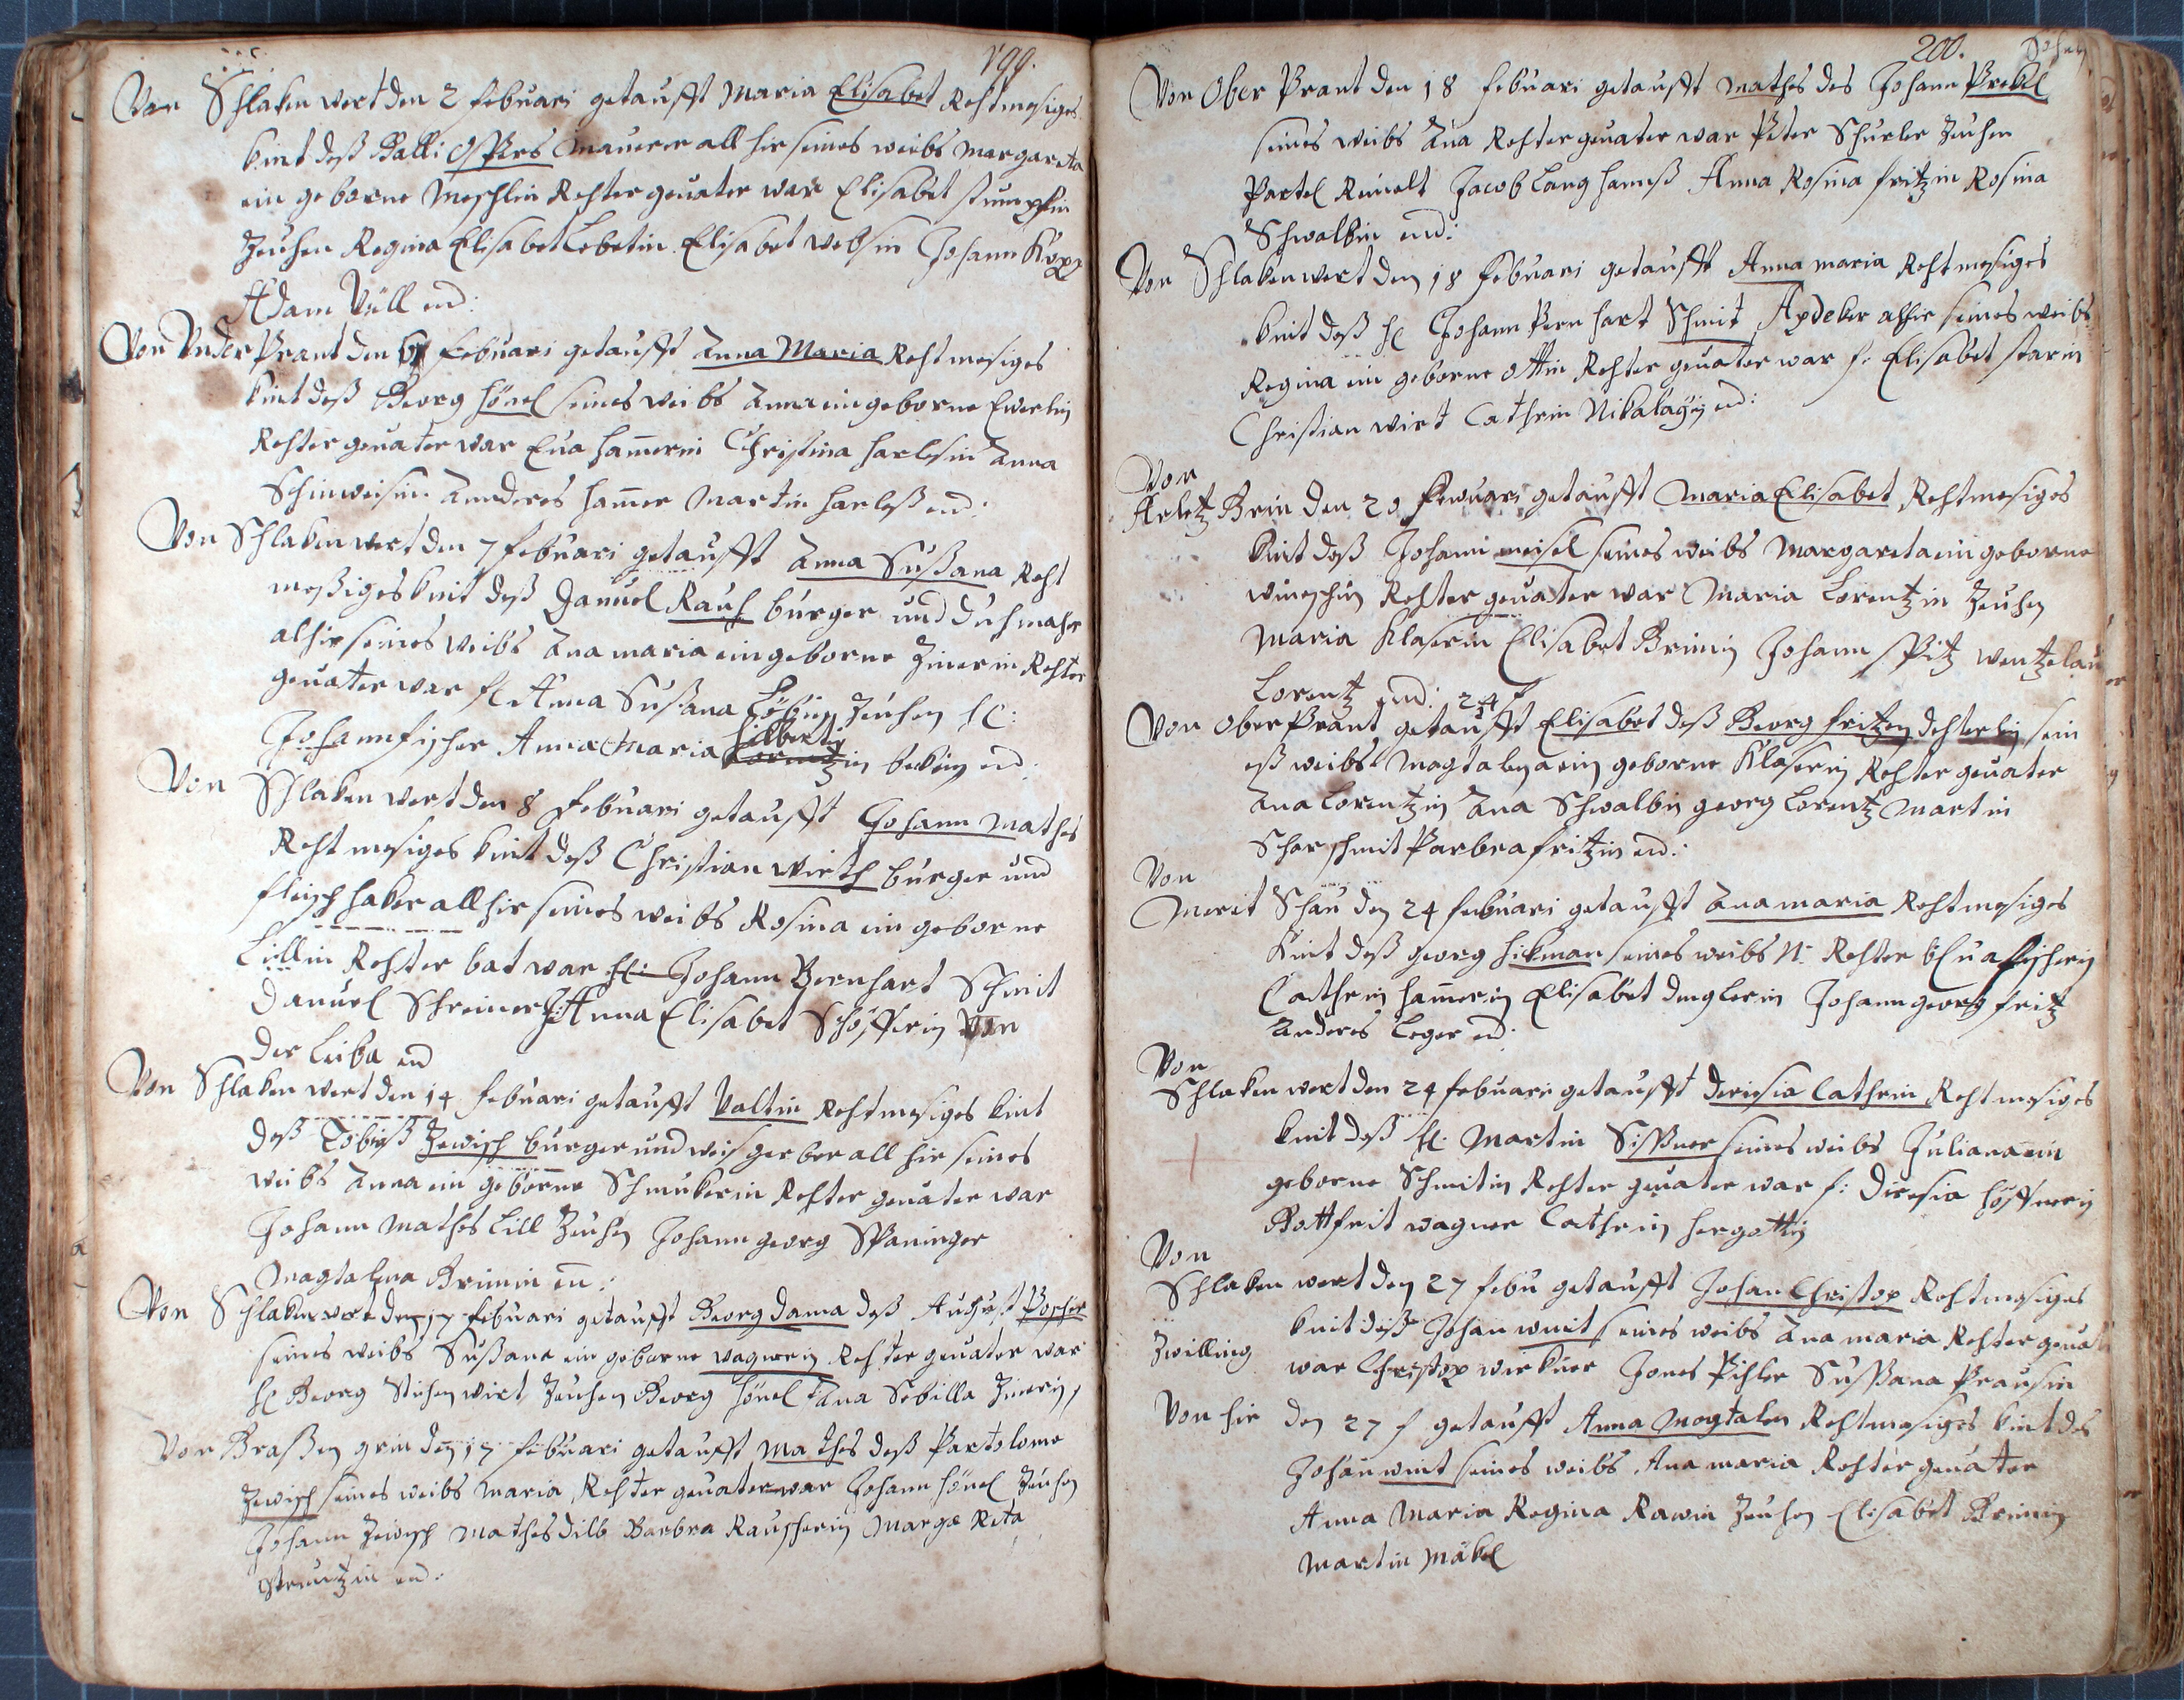 199.
Von Schlaken wert den 2 febuari getaufft Maria Elisabet Rechtmesiges
kint deß Balli Ospers Maurer all hir seines weibs Margareta
ein geborne Meschlin Rechter geuater war Elisabet stumpfin
Zeuchen Regina Elisabet Lebetin Elisabet Websin Johann Kopp
Adam Düll end:
Von Under Prant den febuari getaufft Anna Maria Rechtmesiges
kint deß Georg Hönel seines weibs Anna ein geborne Ewerlin
Rechter geuater war Eua Hamerin Christina Harlesin Anna
Schinweisin Annderes Hamer Martin Harleß end:
Von Schlaken wert den 7 febuari getaufft Anna Sußana Recht
meßiges kint deß Danuel Rauch burger und duchmacher
alhir seines weibs Ana maria ein geborne Zinerin Rechter
geuater war f Anna Sußana Löbin Zeuchen H:
Johann fischer Anna Maria Hilbertin Lorentzin bekin end:
Von Schlaken wert den 8 febuari getaufft Johann Mathes
Recht mesiges kint deß Christian Wirth burger und
fleischhaker all hir seines weibs Rosina ein geborne
Lillin Rechter bat war H: Johann Bernhart Schmit
Danuel Schreiner J: Anna Elisabet Schöfferin Von
der Leiba end
Von Schlaken wert den 14 febuari getaufft Valtin Rechtmesiges kint
deß Tobiaß Zewisch burger und weisgerber all hir seines
weibs Anna ein geborne Schmukerin Rechter geuater war
Johann Mathes Lill Zeuchen Johann georg Spaninger
Magtalena Brinin en:
Von Schlaken wert den 17 febuari getaufft Georg dama deß August Poscher
seines weibs Sußana ein geborne wagnerin Rechter geuater war
H Georg Stichenwirt Zeuchen Georg Hönel Ana Sebilla Zinerin
Von Graßen grin den 17 febuari getaufft Mathes deß Partolome
Zewisch seines weibs Maria Rechter geuater war Johann Hönel Zeuchen
Johann Zewisch Mathes dilb Barbra Rauscherin Marga Reta
Struntzin end:
200.
Von Ober Prant den 18 febuari getaufft Mathes des Johann Prekel
seines weibs Ana Rechter geuater war Peter Schurler Zeuchen
Partel Reinalt Jacob Lang Hanneß Anna Rosina fritzin Rosina
Schwalbin end:
Von Schlaken wert den 18 febuari getaufft Anna maria Recht mesiges
kint deß H Johann Pernhart Schmit Apdeker alhir seines weibs
Regina ein geborne Ottin Rechter geuater war f: Elisabet starin
Christian Wirt Cathrin Nikalayin end:
Von
Arletz Grin den 20 fewuari getaufft Maria Elisabet Rechtmesiges
kint deß Johann meisel seines weibs Margareta ein geborne
Rechter geuater war Maria Lorentzin Zeuchen
Maria Klaserin Elisabet Brinin Johann Spitz Wentzelau
Lorentz end: 24 f
Von Ober Prant getaufft Elisabet deß Georg fritzen dechterlein sein
eß weibs Magtalena ein geborne Klaserin Rechter geuater
Ana Lorentzin Ana Schwalbin georg Lorentz Martin
Scharschmit Parbra fritzin end:
Von
Merit Schau den 24 febuari getaufft Anamaria Rechtmesiges
kint deß georg Hikman seines weibs N: Rechter Eua fischerin
Cathrin Hamerin Elisabet denglerin Johann georg fritz
Anderes Leger end:
Von
Schlaken wert den 24 febuari getaufft deresia Cathrin Rechtmesiges
kint deß H: Martin Sißner seines weibs Juliana ein
geborne Schmitin Rechter geuater war f: Diresia Höffnerin
Gottfrit wagner Cathrin Hergottin
Von
Schlaken wert den 27 febu getaufft Johan Christop Rechtmesiges
kint deß Johan went seines weibs Ana maria Rechter geuat
Zwilling war Christop werkner Jones Pihler Sußana Prausin
Von hir den 27 f getaufft Anna Magtalen Rechtmesiges kint des
Johan went seines weibs Ana maria Rechter geuater
Anna Maria Regina Rawin Zeuchen Elisabet Brinin
Martin Mäkel